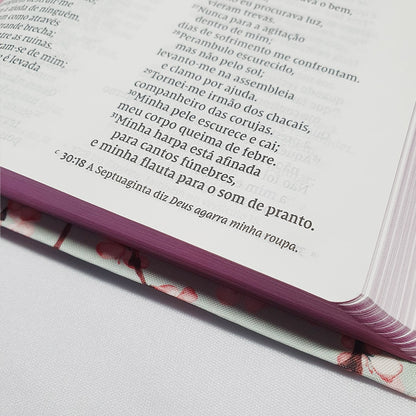 a ajuda de ninguém.
m como através
grande brecha;
as ruínas.
am-se de mim;
e é levada
eu procurava luz,
vieram trevas.
²⁷Nunca para a agitação
dentro de mim;
dias de sofrimento me confrontam.
²⁸Perambulo escurecido,
mas não pelo sol;
levanto-me na assembleia
e clamo por ajuda.
²⁹Tornei-me irmão dos chacais,
companheiro das corujas.
³⁰Minha pele escurece e cai;
meu corpo queima de febre.
³¹Minha harpa está afinada
para cantos fúnebres,
e minha flauta para o som de pranto.
ᶜ 30:18 A Septuaginta diz Deus agarra minha roupa.